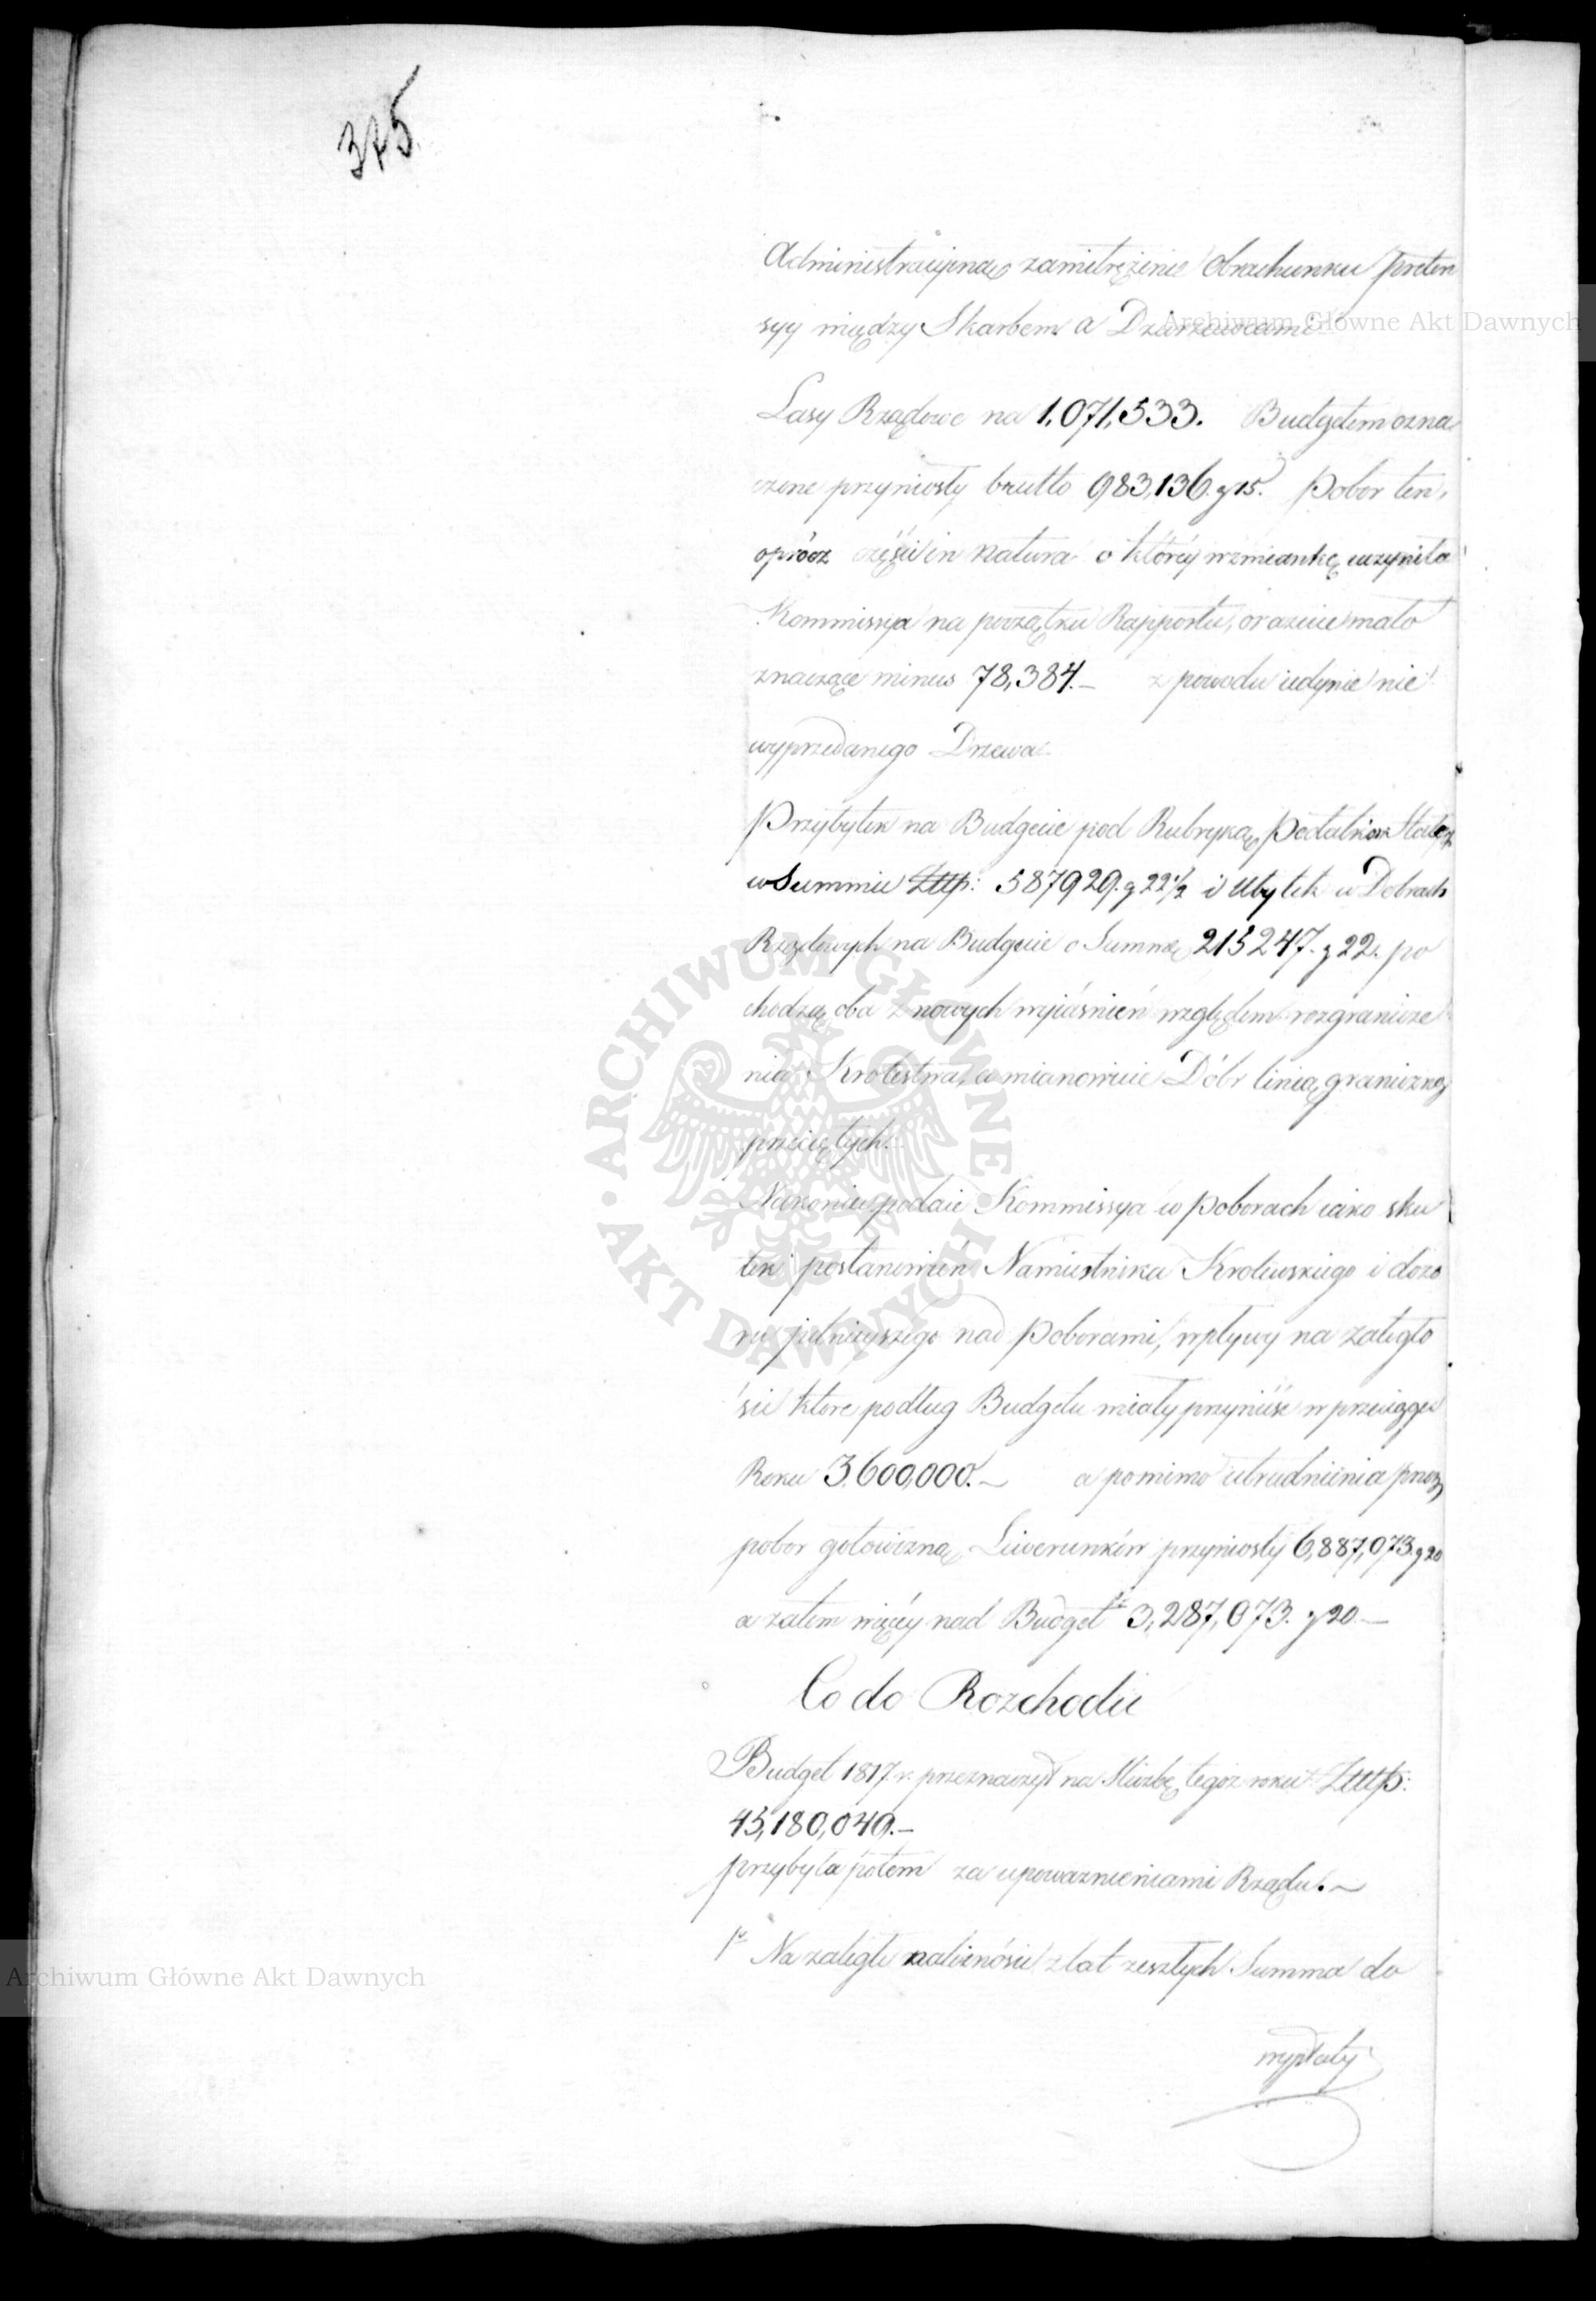 375
Administracyiną zamitrężenie Obrachunku preten
syy między Skarbem a Dzierzawcami
Lasy Rządowe na 1,071,533. Budgetem ozna
czone przyniosły brutto 983,136. g 15. Pobor ten,
oprócz części in natura o któréy wzmiankę uczyniła
Kommissya na początku Rapportu, okazuie mało
znaczące minus 78,384.– z powodu iedynie nie
wyprzedanego Drzewa.
Przybytek na Budgecie pod Rubryką Podatków Stałych
w Summie Złłp: 587929. g 22 1/2 i Ubytek w Dobrach
Rządowych na Budgecie o Summę 215247. g 22. po
chodzą oba z nowych wyiaśnień względem rozgranicze
nia Krolestwa, a mianowicie Dóbr linią graniczną
przeciętych.
Nakoniec podaie Kommissya w Poborach iako sku
tek postanowień Namiestnika Krolewskiego i dozo
ru pilnieyszego nad Poborami, wpływy na zaległo
ści które podług Budgetu miały przynieść w przeciągu
Roku 3,600,000.– a pomimo utrudnienia przez
pobor gotowizną Liwerunków przyniosły 6,887,073. g 20
a zatem więcéy nad Budget 3,287,073. g 20.–
Co do Rozchodu
Budget 1817 r. przeznaczył na Służbę tegoż roku Złłp:
45,180,049.–
przybyła potem za upoważnieniami Rządu.–
1o Na zaległe należności z lat zeszłych Summa do
wypłaty
Archiwum Główne Akt Dawnych
Archiwum Główne Akt Dawnych
ARCHIWUM GŁÓWNE AKT DAWNYCH